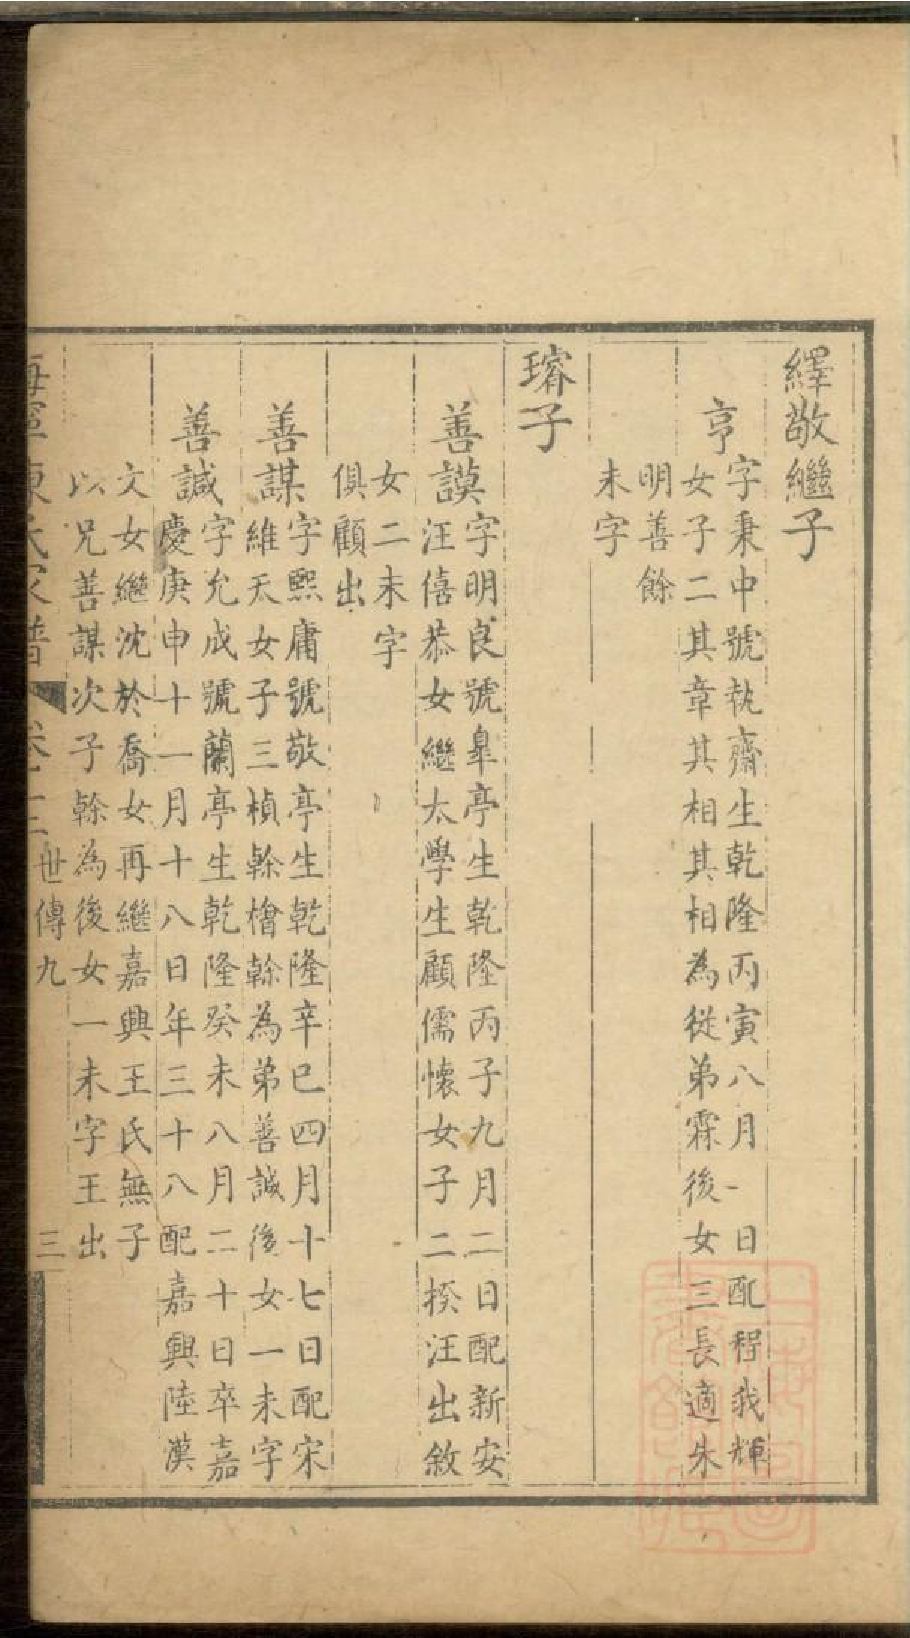 繹敬繼子
亨
字秉中號執齋生乾隆丙寅八月一日配程我輝
女子二其章其相其相為從弟霖後女三長適朱
明善餘
未字
璿子
善謨
字明良號臯亭生乾隆丙子九月二日配新安
汪僖恭女繼太學生顧儒懷女子二揆汪出敘
女二未字
俱顧出
善謀
字熙庸號敬亭生乾隆辛巳四月十七日配宋
維天女子三楨榦檜榦為弟善誠後女一未字
善誠
字允成號蘭亭生乾隆癸未八月二十日卒嘉
慶庚申十一月十八日年三十八配嘉興陸漢
文女繼沈於喬女再繼嘉興王氏無子
以兄善謀次子榦為後女一未字王出
海寧陳氏家譜
世傳九
三